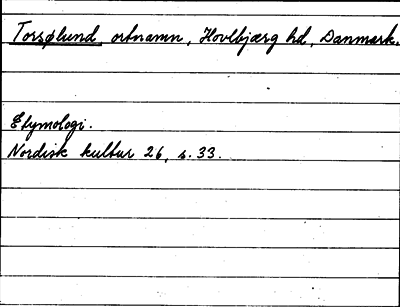 Torsølund ortnamn, Hovlbjærg hd, Danmark.
Etymologi.
Nordisk kultur 26, s. 33.